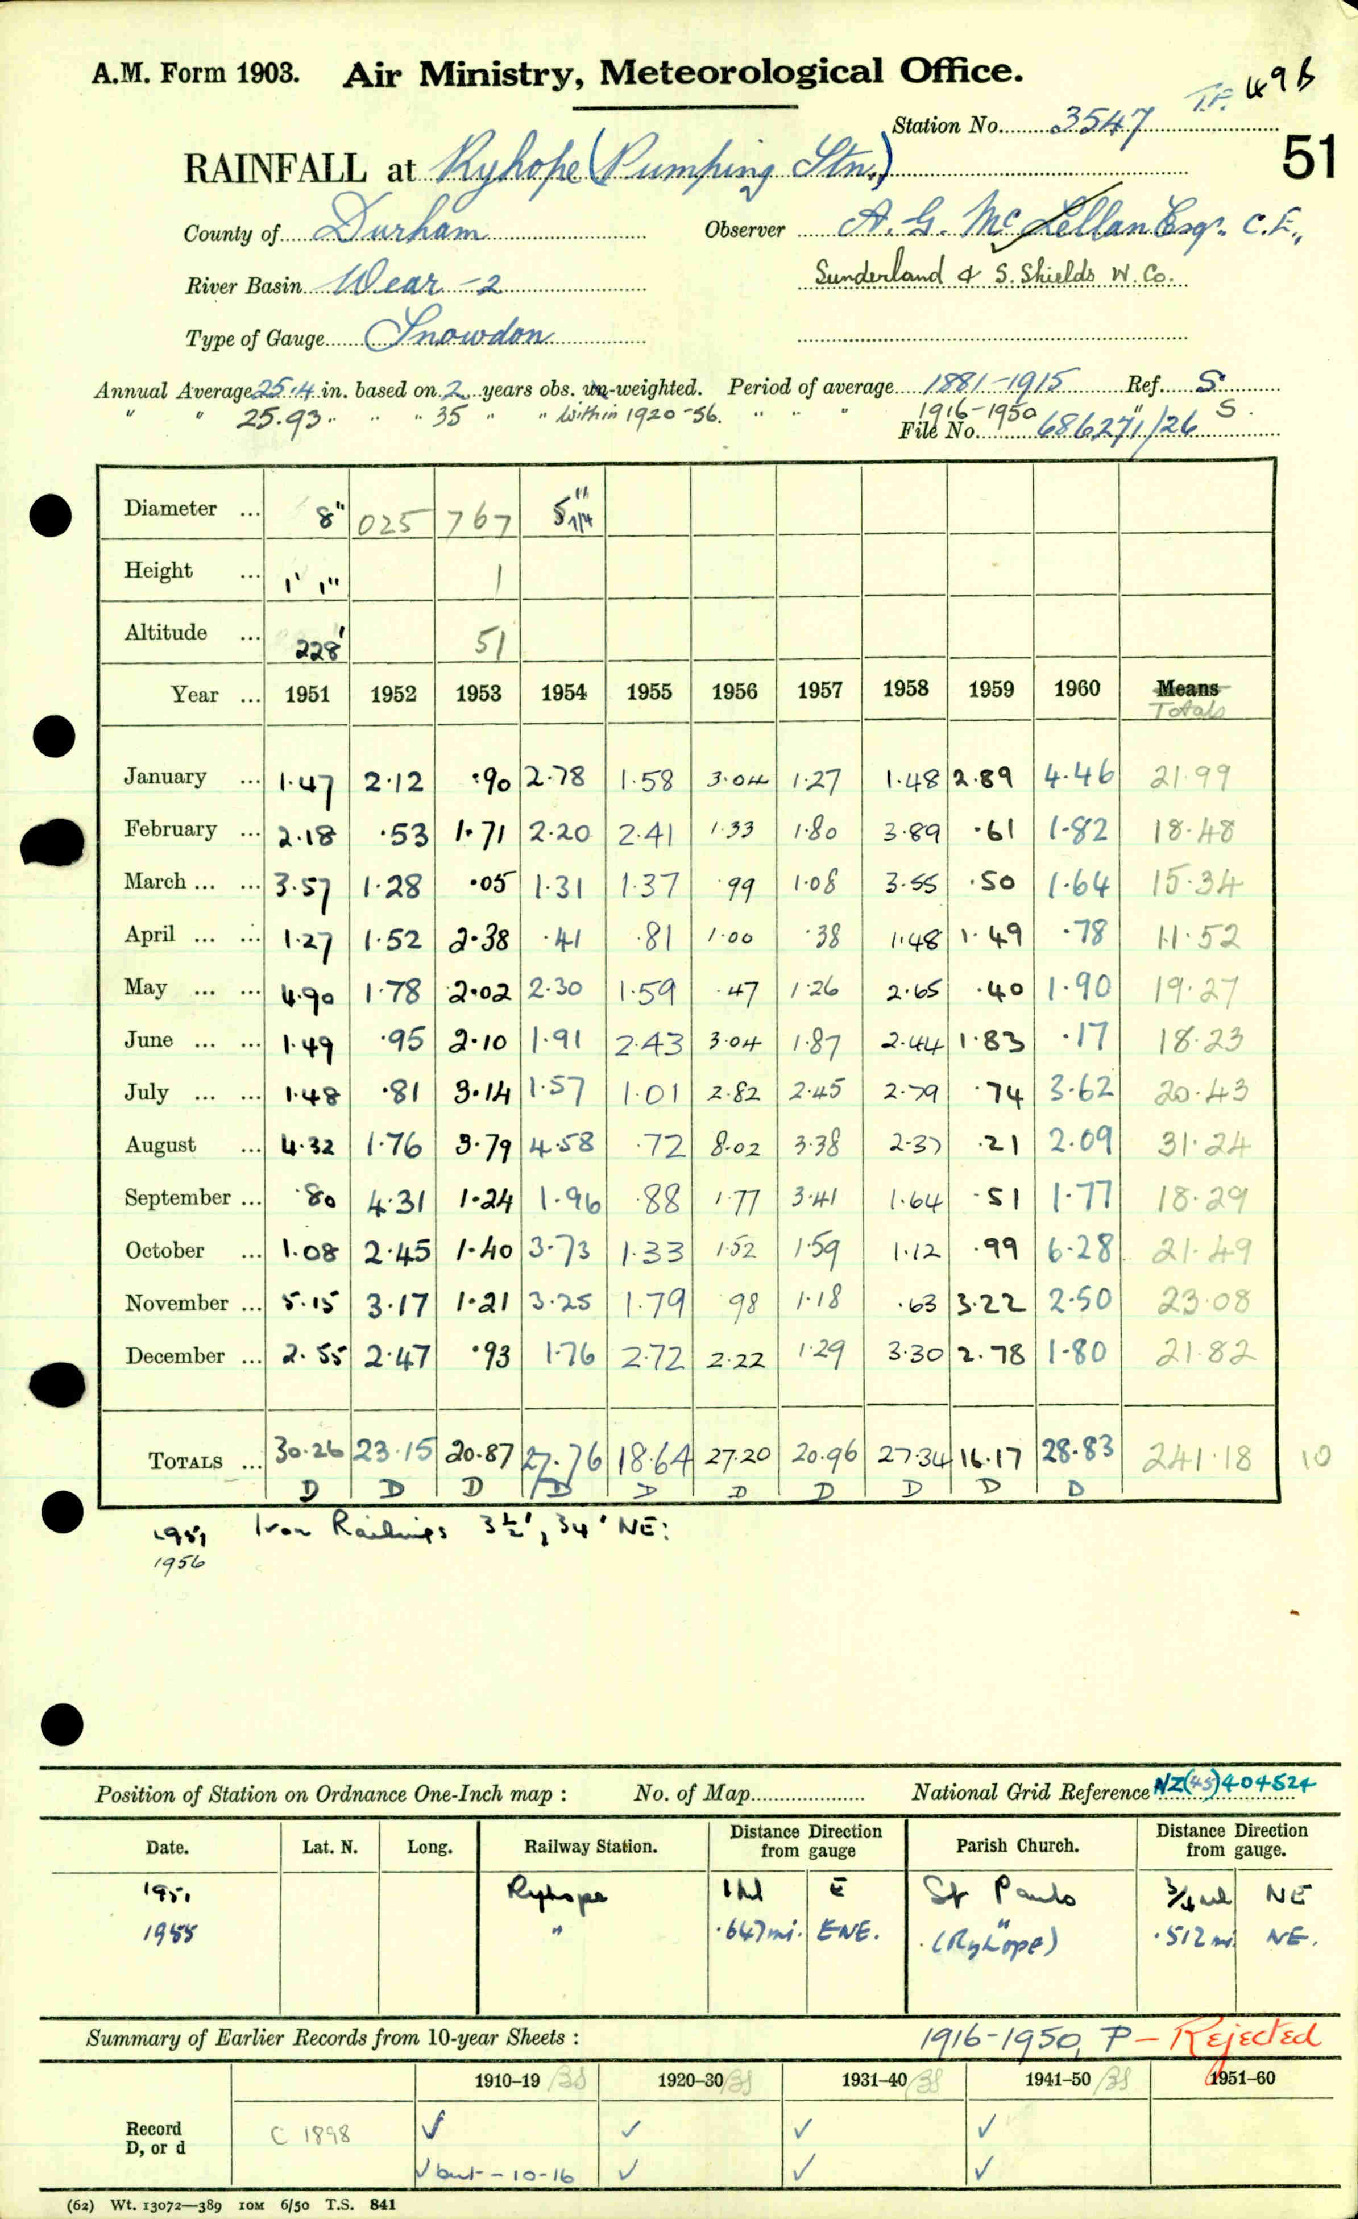 A.M. Form 1903. Air Ministry, Meteorological Office. T.P. 49B
Station No. 3547
51
RAINFALL at Ryhope (Pumping Stn.)
County of Durham Observer A. G. McLellan Esqr. C.E.,
River Basin Wear -2 Sunderland & S. Shields W. Co.
Type of Gauge Snowdon
Annual Average 25.4 in. based on 2 years obs. un-weighted. Period of average 1881-1915 Ref. S
" " 25.93 " " " 35 " " Within 1920-56. " " " 1916-1950 " S.
File No. 686271/26
Diameter ... 8" 025 767 5 1/4"
Height ... 1' 1" 1
Altitude ... 228' 51
Year ... 1951 1952 1953 1954 1955 1956 1957 1958 1959 1960 Means
Totals
January ... 1.47 2.12 .90 2.78 1.58 3.04 1.27 1.48 2.89 4.46 21.99
February ... 2.18 .53 1.71 2.20 2.41 1.33 1.80 3.89 .61 1.82 18.48
March ... ... 3.57 1.28 .05 1.31 1.37 .99 1.08 3.55 .50 1.64 15.34
April ... ... 1.27 1.52 2.38 .41 .81 1.00 .38 1.48 1.49 .78 11.52
May ... ... 4.90 1.78 2.02 2.30 1.59 .47 1.26 2.65 .40 1.90 19.27
June ... ... 1.49 .95 2.10 1.91 2.43 3.04 1.87 2.44 1.83 .17 18.23
July ... ... 1.48 .81 3.14 1.57 1.01 2.82 2.45 2.79 .74 3.62 20.43
August ... 4.32 1.76 3.79 4.58 .72 8.02 3.38 2.37 .21 2.09 31.24
September ... .80 4.31 1.24 1.96 .88 1.77 3.41 1.64 .51 1.77 18.29
October ... 1.08 2.45 1.40 3.73 1.33 1.52 1.59 1.12 .99 6.28 21.49
November ... 5.15 3.17 1.21 3.25 1.79 .98 1.18 .63 3.22 2.50 23.08
December ... 2.55 2.47 .93 1.76 2.72 2.22 1.29 3.30 2.78 1.80 21.82
TOTALS ... 30.26 23.15 20.87 27.76 18.64 27.20 20.96 27.34 16.17 28.83 241.18 10
D D D D D D D D D D
1951 Iron Railings 3½', 34' NE:
1956
Position of Station on Ordnance One-Inch map : No. of Map National Grid Reference NZ(45)404524
Date. Lat. N. Long. Railway Station. Distance from Direction gauge Parish Church. Distance from Direction gauge.
1951 Ryhope 1 Ml E St Pauls ¾ ml NE
1955 " .647mi. ENE. " (Ryhope) .512 mi NE.
Summary of Earlier Records from 10-year Sheets : 1916-1950, P - Rejected
1910–19 BS 1920–30 BS 1931–40 BS 1941–50 BS 1951–60
Record C 1898 ✓ ✓ ✓ ✓
D, or d ✓ but - 10-16 ✓ ✓ ✓
(62) Wt. 13072—389 10M 6/50 T.S. 841